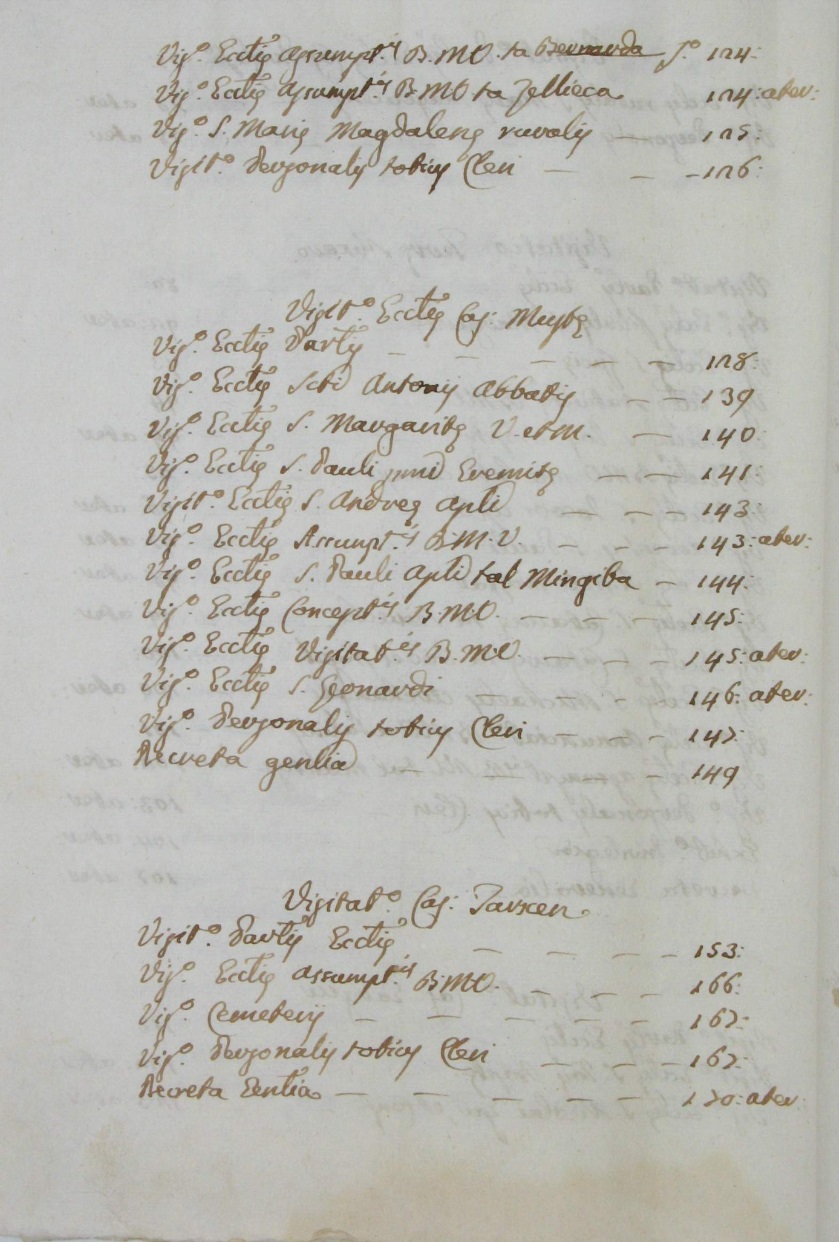 Vis.º Ecctę Assumpt.ˢ B.M.V. ta Bernarda f.º 124:
Vis.º Ecctę Assumpt.ˢ B.M.V. ta Zellieca 124: ater:
Vis.º S. Marię Magdalenę ruralis — 125:
Visit.º Personalis totius Cleri — — — 126:
Visit.º Ecctę Cas: Mustę
Vis.º Ecctę Partis — — — — — 128:
Vis.º Ecctę Scti Antonij Abbatis — — 139
Vis.º Ecctę S. Margaritę V. et M. — 140
Vis.º Ecctę S. Pauli primi Eremitę — — 141:
Visit.º Ecctę S. Andreę Apli — — 143:
Vis.º Ecctę Assumpt.ˢ B.M.V. — — — 143: ater:
Vis.º Ecctę S. Pauli Apli tal Mingiba — 144:
Vis.º Ecctę Concept.ˢ B.M.V. — — — 145:
Vis.º Ecctę Visitat.ˢ B.M.V. — — — 145: ater:
Vis.º Ecctę S. Leonardi — — — 146: ater:
Vis.º Personalis totius Cleri — — — 147:
Decreta genlia — — — 149
Visitat.º Cas: Tarxen
Visit.º Partis Ecctę — — — — — 153:
Vis.º Ecctę Assumpt.ˢ B.M.V. — — — 166:
Vis.º Cemeterij — — — — — — 167:
Vis.º Personalis totius Cleri — — — 167:
Decreta Genlia — — — — — 170: ater: